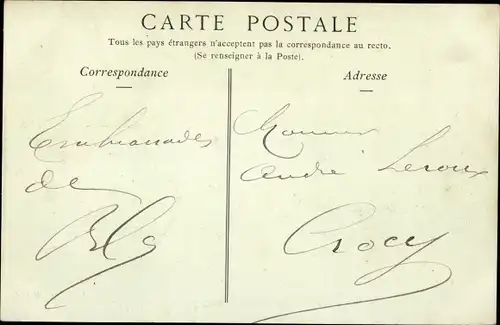 CARTE POSTALE
Tous les pays étrangers n'acceptent pas la correspondance au recto.
(Se renseigner à la Poste).
Correspondance
Embrassades
de
Adresse
Monsieur
André Leroux
Crocy